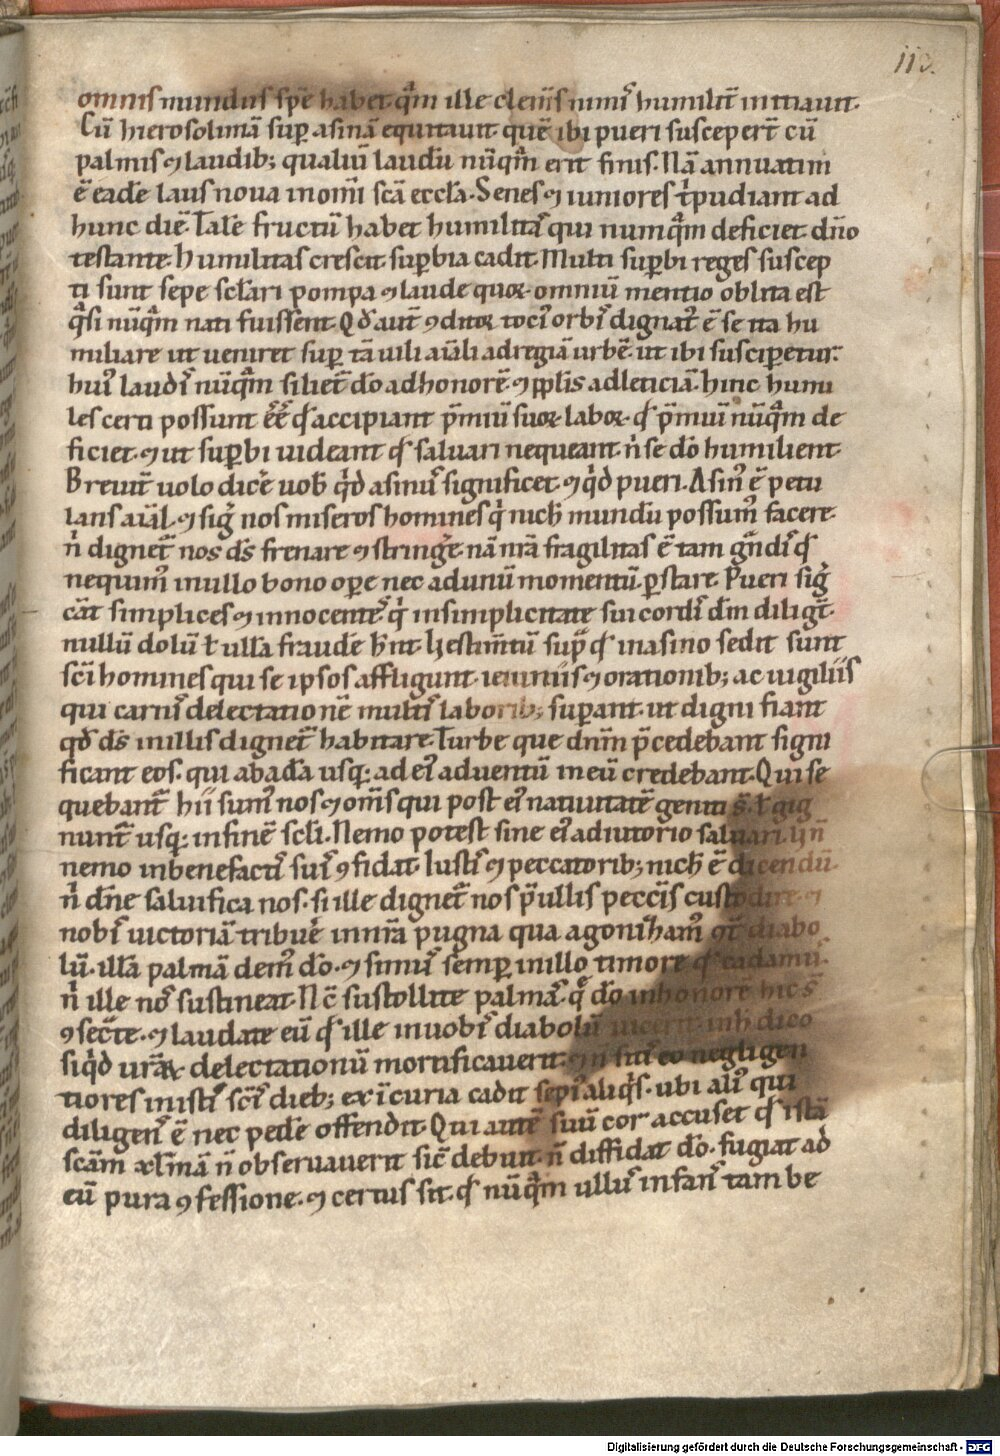 110.
omnis mundus spē habet. q̄m ille clem̄s nimꝰ humilit̄ intrauit.
Cū hierosolimā suꝑ asinā equitauit. quē ibi pueri susceper̄t cū
palmis ⁊ laudib; qualiū laudū nūq̄m erit finis. Nā annuatim
ē eadē laus noua in om̄i scā eccl̄a. Senes ⁊ iuniores tͥpudiant ad
hunc diē. Talē fructū habet humilitas̄ qui numq̄m deficiet. dn̄o
testante. humilitas crescit suꝑbia cadit. Multi suꝑbi reges suscep
ti sunt sepe sclāri pompa ⁊ laude quoꝝ omniū mentio oblita est
q̄si nūq̄m nati fuissent. Qd̄ aut̄ ꝯditoꝝ tociꝰ orbiſ dignatꝰ ē se ita hu
miliare ut ueniret suꝑ tā uili aīali ad regiā urbē. ut ibi susciꝑetur.
huiꝰ laudiſ nūq̄m siliet̄ dō ad honorē. ⁊ ppl̄is ad leticiā. hinc humi
les certi possunt ēē qd̄ accipiant p̄miū suoꝝ laboꝝ. qd̄ p̄miū nūq̄m de
ficiet. ⁊ ut suꝑbi uideant qd̄ saluari nequeant. n̄ se dō humilient.
Breuit̄ uolo dicē uob̄ qͥd asinꝰ significet. ⁊ qͥd pueri. Asinꝰ ē petu
lans aīal. ⁊ siḡ nos miseros homines qͥ nich̄ mundū possumꝰ facere.
n̄ dignet̄ nos dſ̄ frenare ⁊ stringē. nā nr̄a fragilitas ē tam gn̄dꝰ qd̄
nequimꝰ in ullo bono oꝑe nec ad unū momentū ꝑstare. Pueri siḡ
cāt simplices ⁊ innocenteſ qͥ in simplicitate sui cordiſ dm̄ diligt̄.
nullū dolū ł ullā fraudē hn̄t. Ꜧ estimt̄ū sup̄ qd̄ in asino sedit sunt
scī homines qui se ipsos affligunt. ieiuniis ⁊ orationib; ac uigiliis
qui carnis delectationē multiſ laborib; suꝑant. ut digni fiant
qd̄ dſ̄ in illis dignet̄ habitare. Turbe que dnm̄ p̄cedebant signi
ficant eos. qui ab adā usq; ad eiꝰ aduentū in eū credebant. Qui se
quebant̄ hii sumꝰ nos ⁊ om̄s qui post eiꝰ natiuitatē geniti s̄. ł gig
nunt̄ usq; in finē scl̄i. Nemo potest sine eiꝰ adiutorio saluari. Ꜧ n̄
nemo in benefactiſ suiſ ꝯfidat. Iustiſ ⁊ peccatorib; nich̄ ē dicendū
n̄ dn̄e saluifica nos. si ille dignet̄ nos p̄ ullis peccīs custodire. ⁊
nobiſ uictoriā tribuē in nr̄a pugna qua agonizamꝰ 9t̄ diabo
lū. illā palmā demꝰ dō. ⁊ simuſ semꝑ in illo timore qd̄ cadamꝰ.
n̄ ille noſ sustineat. Nc̄ sustollite palmaſ. q̄ dō in honorē hic s̄
ꝯsec̄te. ⁊ laudate eū qd̄ ille in uobiſ diabolū uicerit. in h̄ dico
siqͥd ur̄aꝝ delectationū mortificauerit. ⁊ n̄ sitiſ eo negligen
tiores in istiſ scīſ dieb; ex īcuria cadit sepiꝰ aliqͥs. ubi aliꝰ qui
diligenſ ē nec pedē offendit. Qui autē suū cor accuset qd̄ istā
scām xl̄mā n̄ obseruauerit sic̄ debuit. n̄ diffidat dō. fugiat ad
eū pura ꝯfessione. ⁊ certus sit. qd̄ nūq̄m ulluſ infanſ tam be
Digitalisierung gefördert durch die Deutsche Forschungsgemeinschaft - DFG